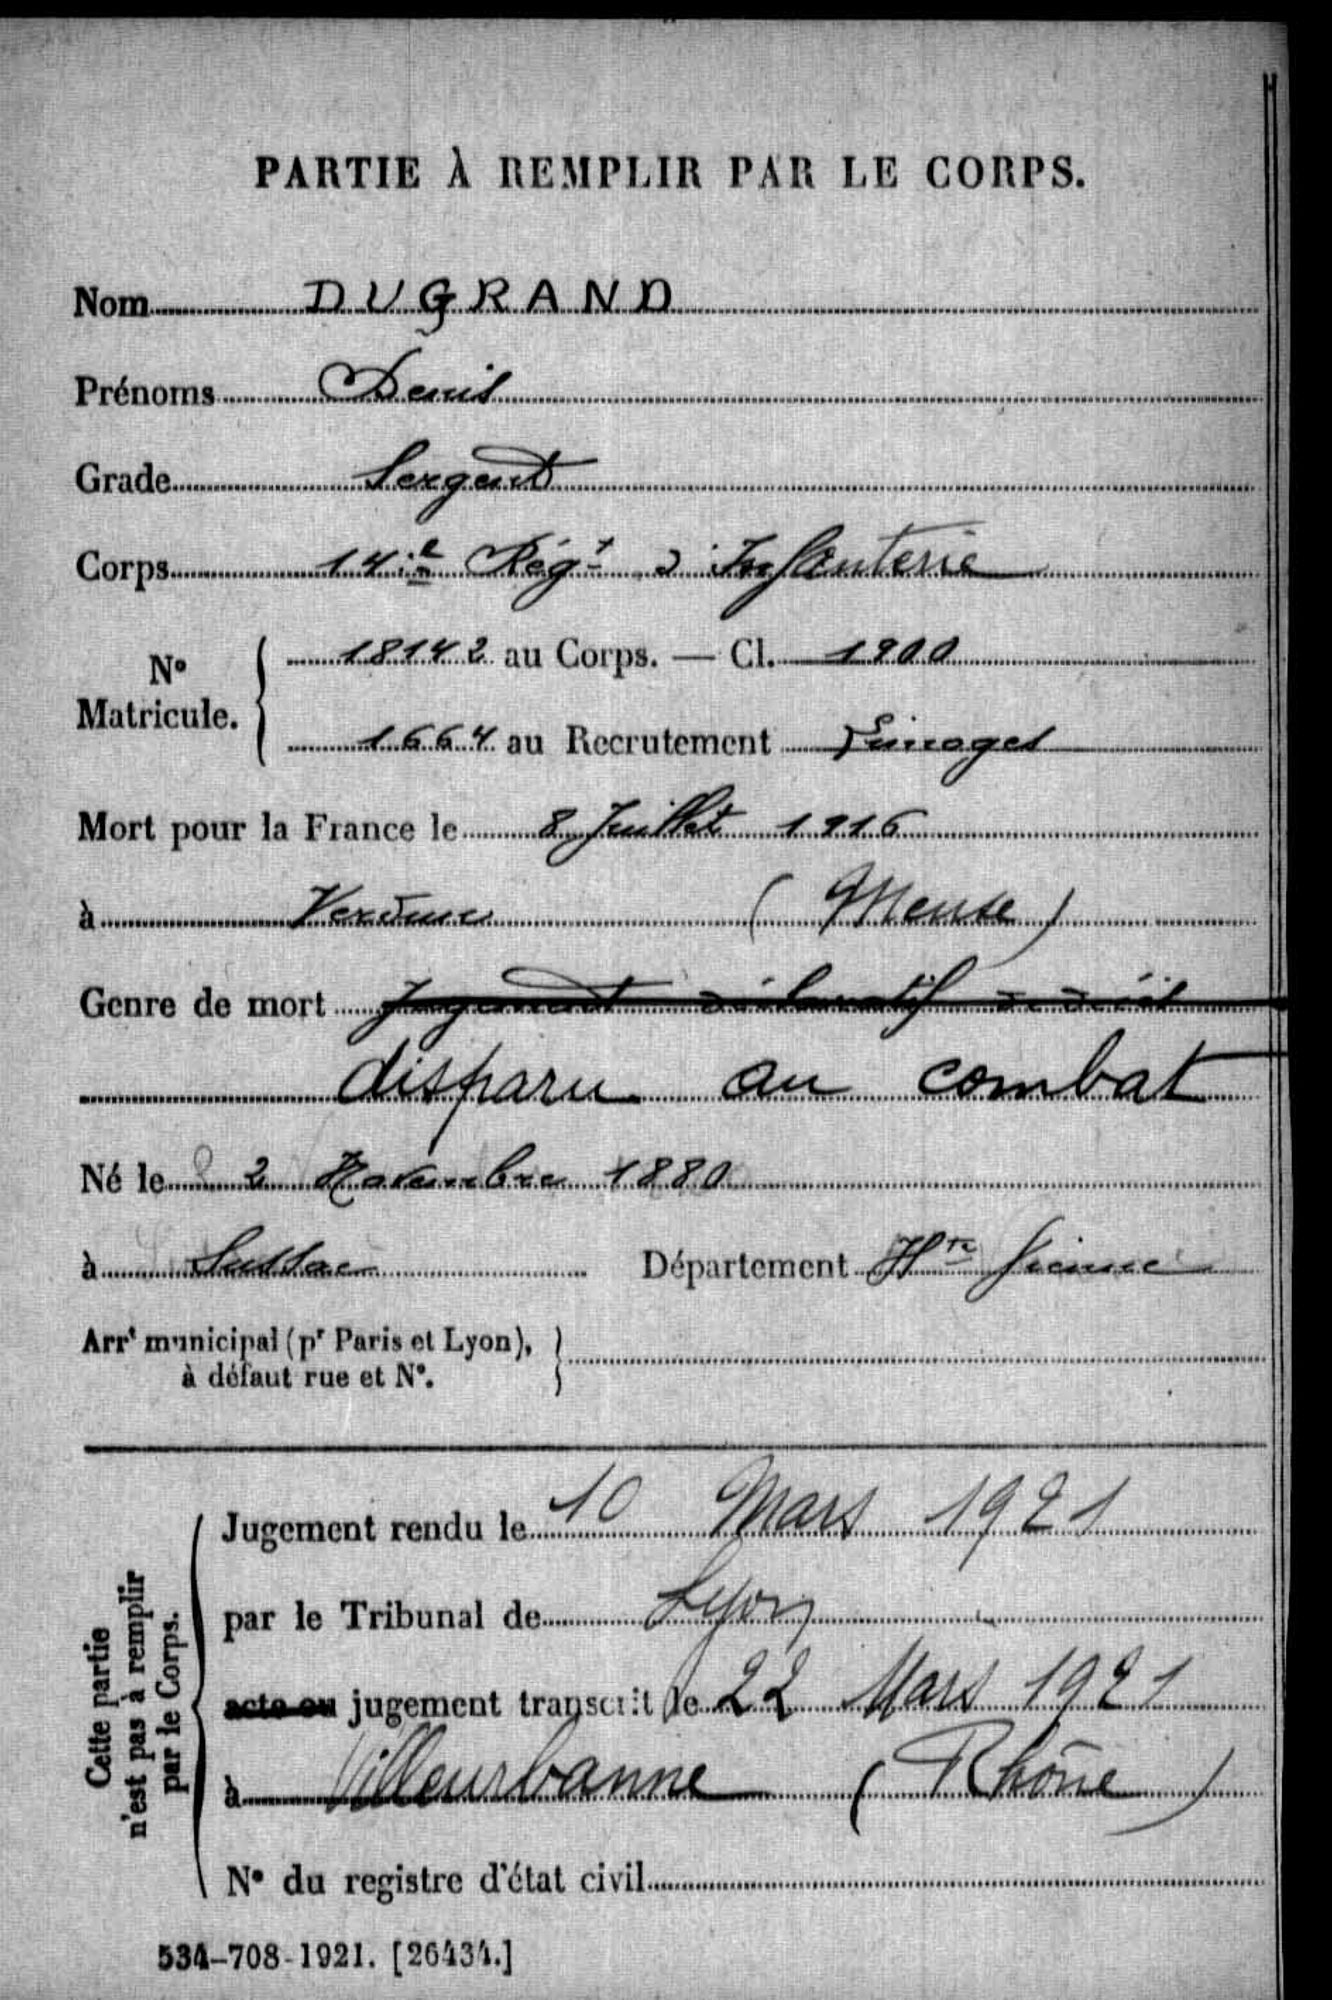 PARTIE À REMPLIR PAR LE CORPS.
Nom DUGRAND
Prénoms Denis
Grade Sergent
Corps 14e Régt d'Infanterie
N° Matricule. { 18142 au Corps. — Cl. 1900
1664 au Recrutement Limoges
Mort pour la France le 8 Juillet 1916
à Verdun (Meuse)
Genre de mort Jugement déclaratif de décès
disparu au combat
Né le 2 Novembre 1880
à Sussac Département Hte Vienne
Arrt municipal (pr Paris et Lyon), }
à défaut rue et N°.
Cette partie
n'est pas à remplir
par le Corps.
Jugement rendu le 10 Mars 1921
par le Tribunal de Lyon
acte ou jugement transcrit le 22 Mars 1921
à Villeurbanne (Rhône)
N° du registre d'état civil
534-708-1921. [26434.]